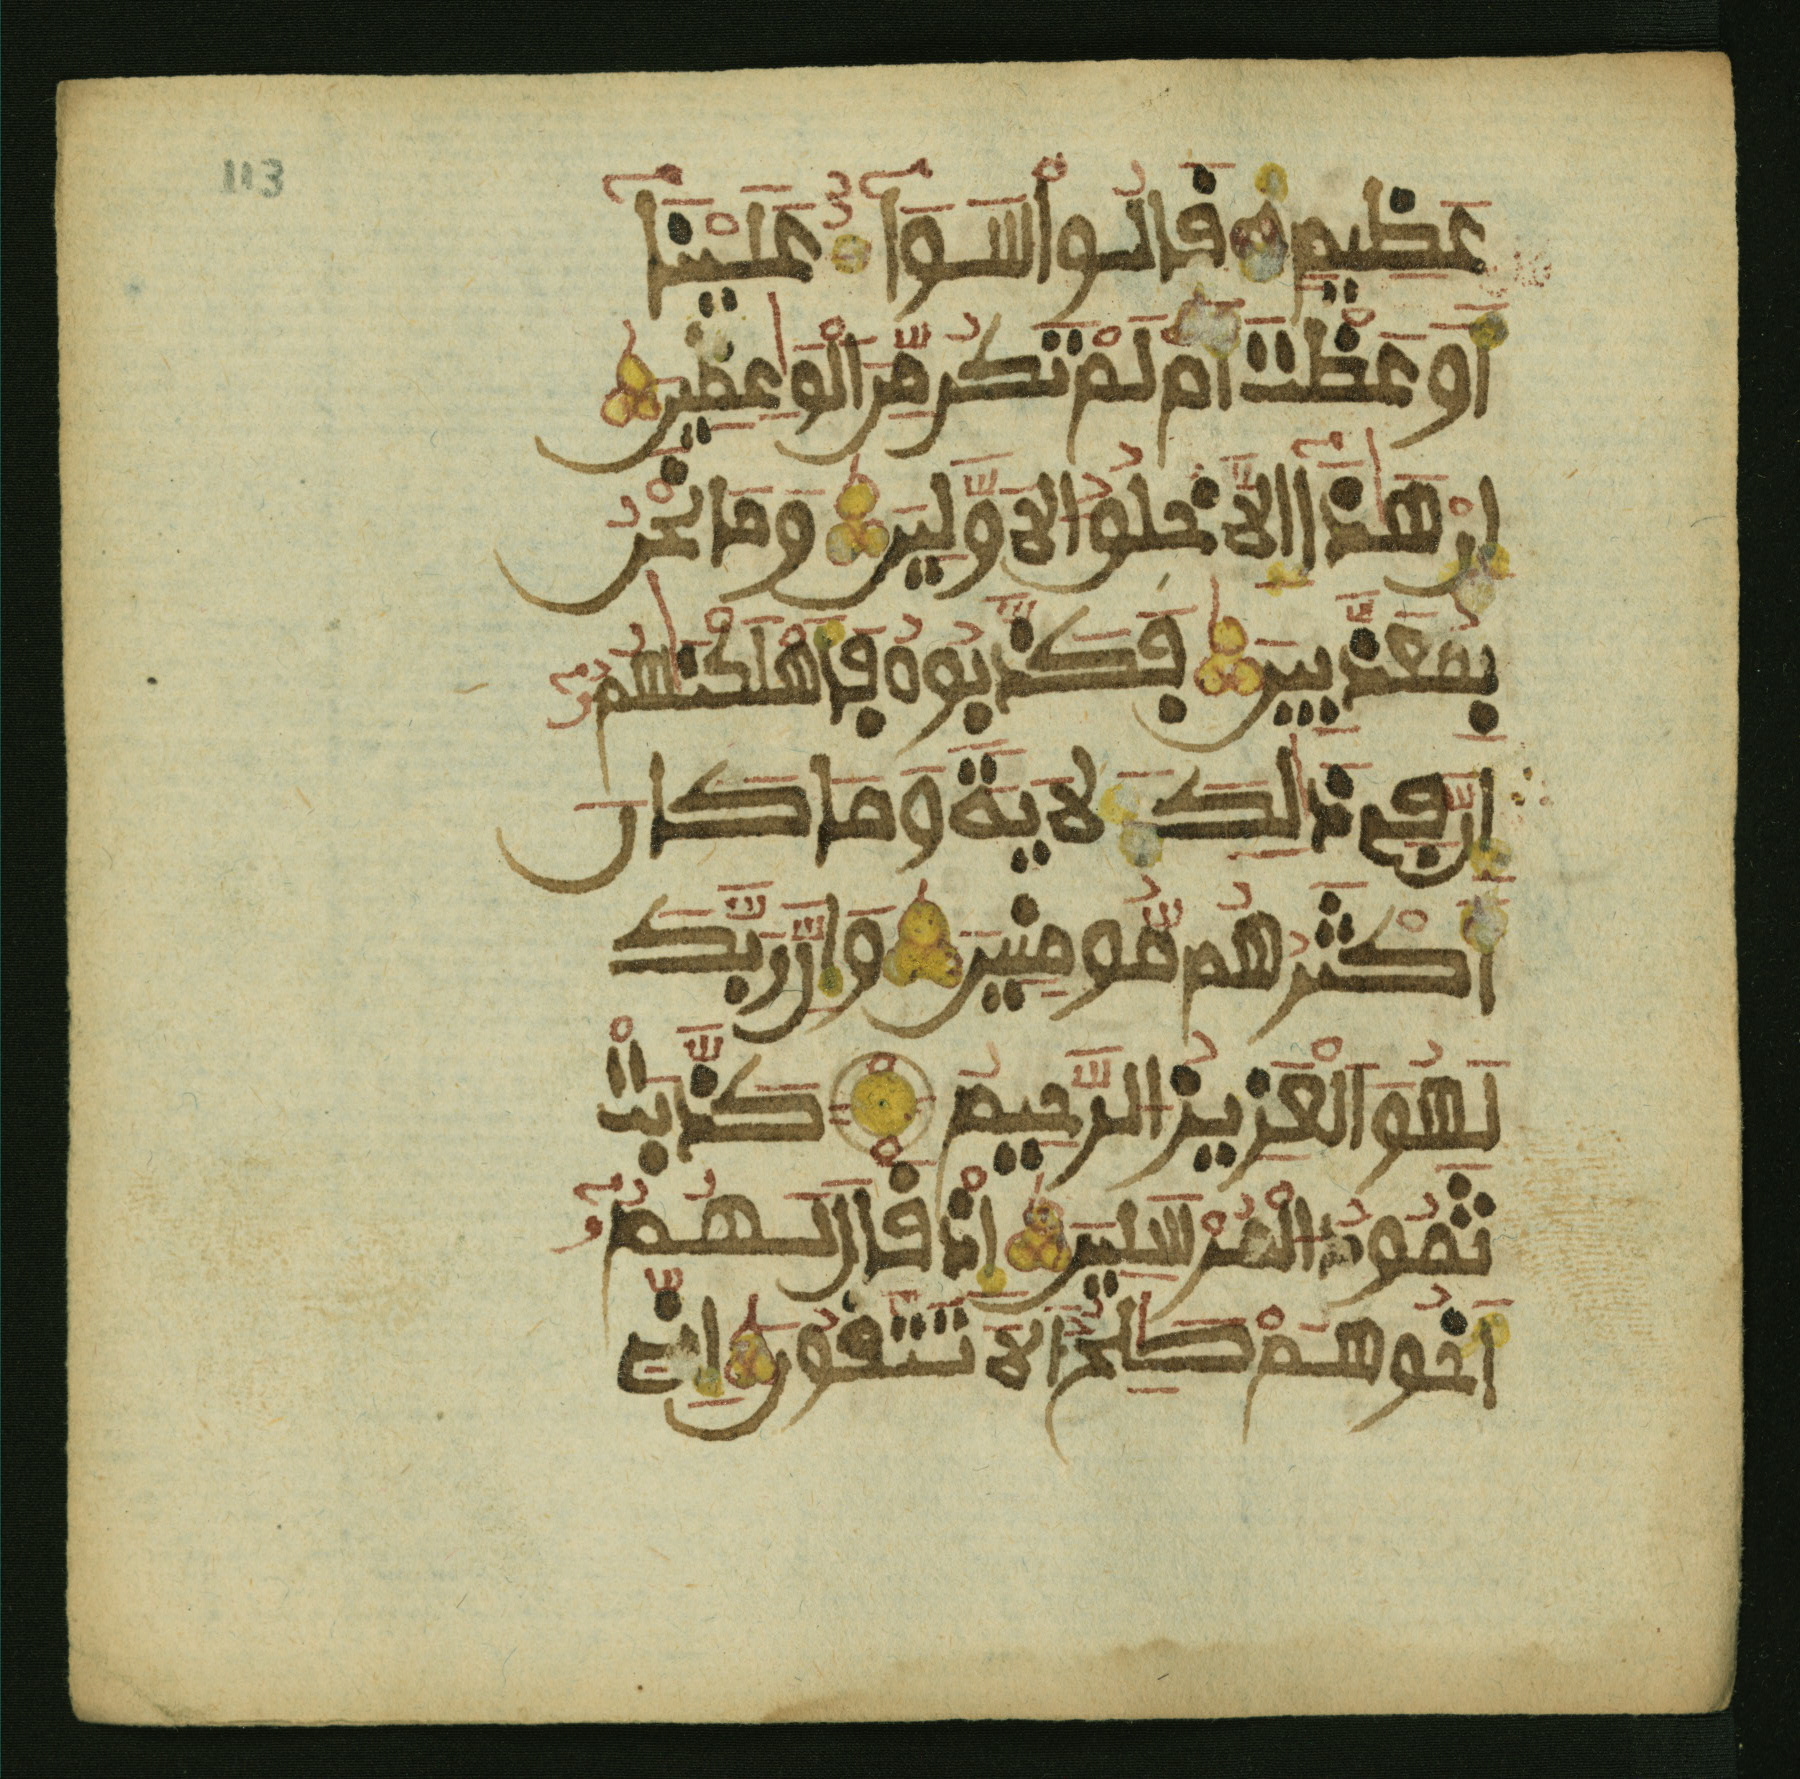 113
عَظِيمٍ قَالُواْ سَوَآءٌ عَلَيْنَآ
أَوَعَظْتَ أَمْ لَمْ تَكُن مِّنَ ٱلْوَٰعِظِينَ
إِنْ هَٰذَآ إِلَّا خُلُقُ ٱلَاوَّلِينَ وَمَا نَحْنُ
بِمُعَذَّبِينَ فَكَذَّبُوهُ فَأَهْلَكْنَٰهُمُۥٓ
إِنَّ فِے ذَٰلِكَ لَأيَةً وَمَا كَانَ
أَكْثَرُهُم مُّومِنِينَ وَإِنَّ رَبَّكَ
لَهُوَ ٱلْعَزِيزُ ٱلرَّحِيمُ كَذَّبَتْ
ثَمُودُ ٱلْمُرْسَلِينَ إِذْ قَالَ لَهُمُۥٓ
أَخُوهُمْ صَٰلِحٌ أَلَا تَتَّقُونَ إِنِّے